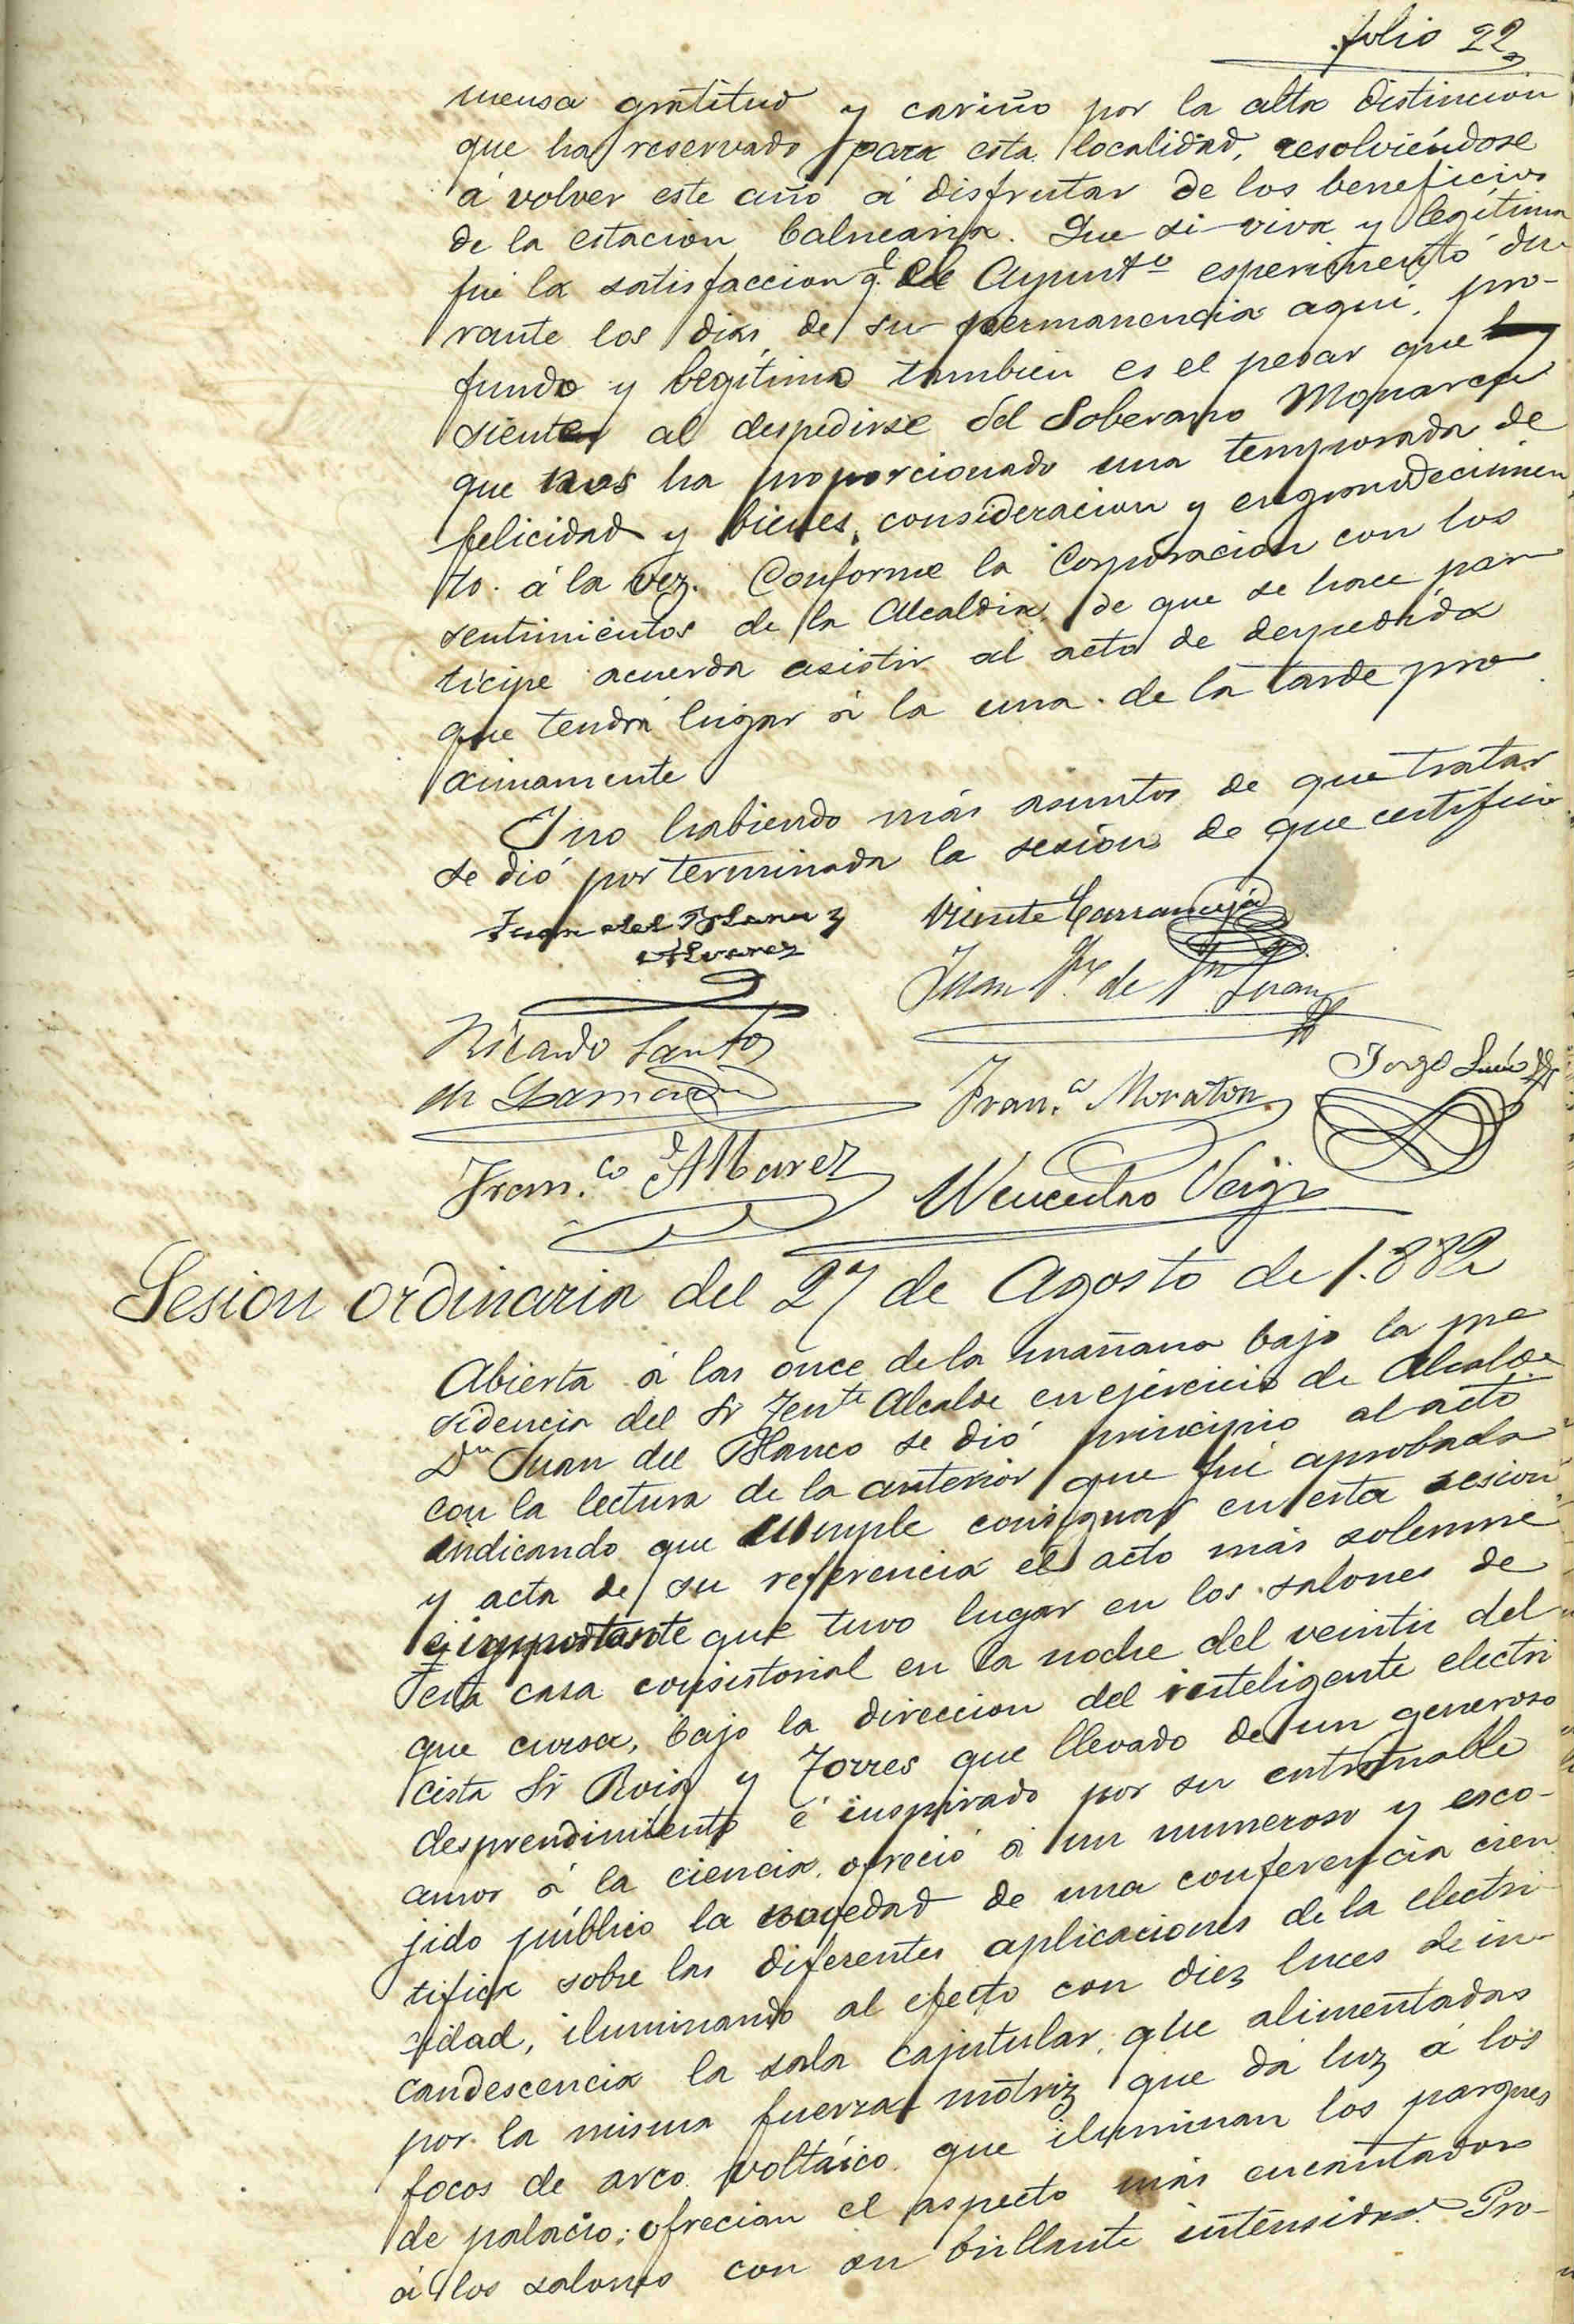 folio 22
mensa gratitud y cariño por la alta distincion
que ha reservado para esta localidad, resolviéndose
á volver este año á disfrutar de los beneficios
de la estacion balnearia. Que si viva y legítima
fué la satisfaccion q.e el Ayunt.o esperimentó du-
rante los dias de su permanencia aqui, pro-
fundo y legítimo tambien es el pesar que
siente al despedirse del Soberano Monarca
que nos ha proporcionado una temporada de
felicidad y bienes, consideracion y engrandecimien
to á la vez. Conforme la Corporacion con los
sentimientos de la Alcaldia de que se hace par
tícipe acuerda asistir al acto de despedida
que tendrá lugar á la una de la tarde pro
ximamente
Y no habiendo más asuntos de que tratar
se dió por terminada la sesión de que certifico
Juan del Blanco y
Alvarez
Vicente Carranceja
Juan de Juan
Ricardo Santos
de Lamadrid
Fran.co Moraton
Jorge
Fran.co Alvarez
Wenceslao Veiga
Sesion ordinaria del 27 de Agosto de 1.882
Abierta á las once de la mañana bajo la pre
sidencia del Sr Tente Alcalde en ejercicio de Alcalde
Dn Juan del Blanco se dió principio al acto
con la lectura de la anterior que fué aprobada
indicando que cumple consignar en esta sesion
y acta de su referencia el acto más solemne
é importante que tuvo lugar en los salones de
esta casa consistorial en la noche del del
que cursa, bajo la direccion del inteligente electri
cista Sr Roig y Torres que llevado de un generoso
desprendimiento é inspirado por su entrañable
amor á la ciencia, ofreció á un numeroso y esco-
jido público la novedad de una conferencia cien
tifica sobre las diferentes aplicaciones de la electri
cidad, iluminando al efecto con diez luces de in-
candescencia la sala capitular, que alimentadas
por la misma fuerza motriz que dá luz á los
focos de arco voltáico que iluminan los parques
de palacio; ofrecian el aspecto más encantador
á los salones con su brillante intensidad. Pro-